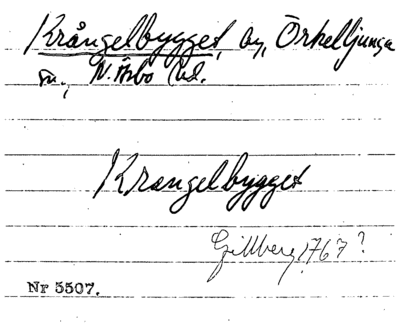 Krångelbygget, by, Örkelljunga
sn., N. Åsbo hd.
Krangelbygget
Gillberg 1767?
Nr 5507.